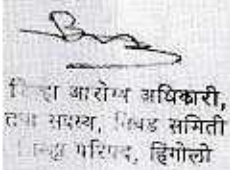 जिल्हा आरोग्य अधिकारी,
तथा सदस्य, निवड समिती
जिल्हा परिषद, हिंगोली